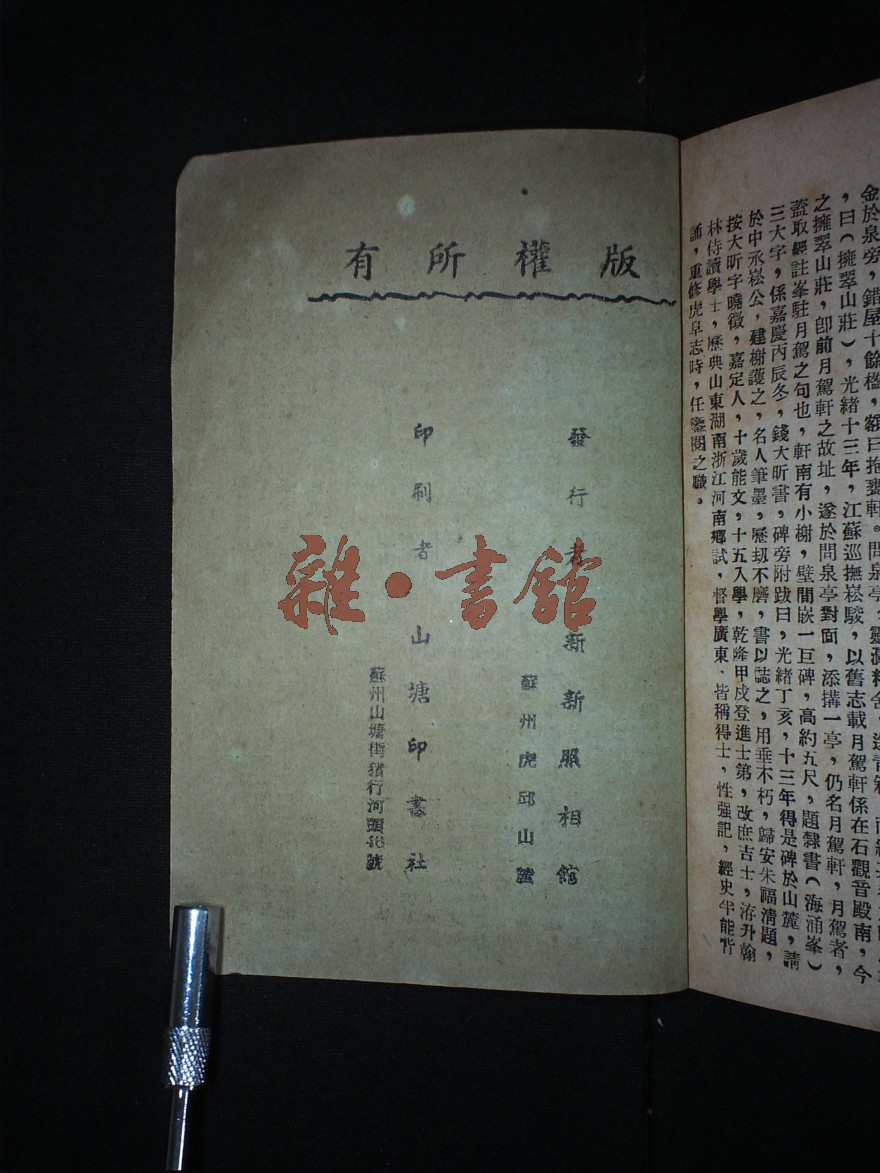 金於泉旁，錯屋十餘楹，額曰抱甕軒。問泉亭、靈瀾精舍、送青簃，
，曰（擁翠山莊），光緒十三年，江蘇巡撫崧駿，以舊志載月駕軒係在石觀音殿南，今
之擁翠山莊，卽前月駕軒之故址，遂於問泉亭對面，添搆一亭，仍名月駕軒，月駕者，
蓋取經註峯駐月駕之句也，軒南有小榭，壁間嵌一巨碑，高約五尺，題隸書（海涌峯）
三大字，係嘉慶丙辰冬，錢大昕書，碑旁附跋曰，光緒丁亥，十三年得是碑於山麓，請
於中丞崧公，建榭護之，名人筆墨，歷刼不磨，書以誌之，用垂不朽，歸安朱福淸題，
按大昕字曉徵，嘉定人，十歲能文，十五入學，乾隆甲戌登進士第，改庶吉士，洊升翰
林侍讀學士，歷典山東湖南浙江河南鄉試，督學廣東，皆稱得士，性强記，經史半能背
誦，重修虎阜志時，任鑒閱之職。
版權所有
發行者 新新照相館
蘇州虎邱山麓
印刷者 山塘印書社
蘇州山塘街猪行河頭號
雜·書館